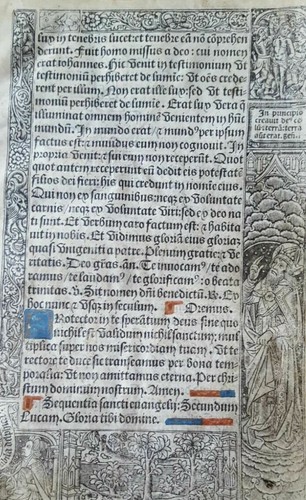 lux in tenebris lucet: et tenebre eā nō cōprehen
derunt. Fuit homo missus a deo: cui nomen
erat iohannes. Hic venit in testimonium vt
testimoniū perhiberet de lumine: vt oēs crede-
rent per illum. Non erat ille lux: sed vt testi
moniū perhiberet de lumine. Erat lux vera q̄
illuminat omnem hominē venientem in hūc
mundū. In mundo erat & mūdus per ipsum
factus est: & mundus eum non cognouit. In
propria venit: & sui eum non receperūt. Quot
quot autem receperunt eū dedit eis potestatē
filios dei fieri: his qui credunt in nomine eius.
Qui non ex sanguinibus: neq̄ ex voluntate
carnis: neq̄ ex voluntate viri: sed ex deo na
ti sunt. Et verbum caro factum est: & habita
uit in nobis. Et vidimus gloriā eius gloriā:
quasi vnigeniti a patre. Plenum gratie: & ve
ritatis. Deo gr̄as. añ. Te inuocamꝰ/te ado
ramus/te laudamꝰ/te glorificamꝰ: o beata
trinitas. v. Sit nomen dn̄i benedictū. R. Ex
hoc nunc & vsq̄ in seculum. Oremus.
PRotector in te sperātium deus sine quo
nichil est validum nichil sanctum: mul
tiplica super nos misericordiam tuam. Vt te
rectore te duce sic transeamus per bona tem
poralia: vt non amittamus eterna. Per chri
stum dominum nostrum. Amen.
Sequentia sancti euangelij: Secundum
Lucam. Gloria tibi domine.
In principio
creauit deꝰ ce
lū: & terrā: terra
aūt erat